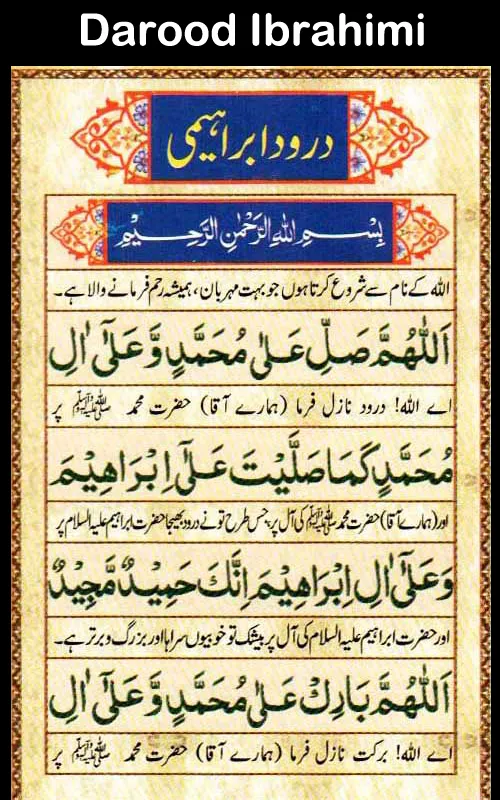 Darood Ibrahimi
درود ابراہیمی
بِسْمِ اللهِ الرَّحْمٰنِ الرَّحِيْمِ
اللہ کے نام سے شروع کرتا ہوں جو بہت مہربان، ہمیشہ رحم فرمانے والا ہے۔
اَللّٰهُمَّ صَلِّ عَلٰى مُحَمَّدٍ وَّ عَلٰٓى اٰلِ
اے اللہ! درود نازل فرما (ہمارے آقا) حضرت محمد ﷺ پر
مُحَمَّدٍ كَمَا صَلَّيْتَ عَلٰٓى اِبْرَاهِيْمَ
اور (ہمارے آقا) حضرت محمد ﷺ کی آل پر، جس طرح تو نے درود بھیجا حضرت ابراہیم علیہ السلام پر
وَ عَلٰٓى اٰلِ اِبْرَاهِيْمَ اِنَّكَ حَمِيْدٌ مَّجِيْدٌ
اور حضرت ابراہیم علیہ السلام کی آل پر بیشک تو خوبیوں سراہا اور بزرگ و برتر ہے۔
اَللّٰهُمَّ بَارِكْ عَلٰى مُحَمَّدٍ وَّ عَلٰٓى اٰلِ
اے اللہ! برکت نازل فرما (ہمارے آقا) حضرت محمد ﷺ پر